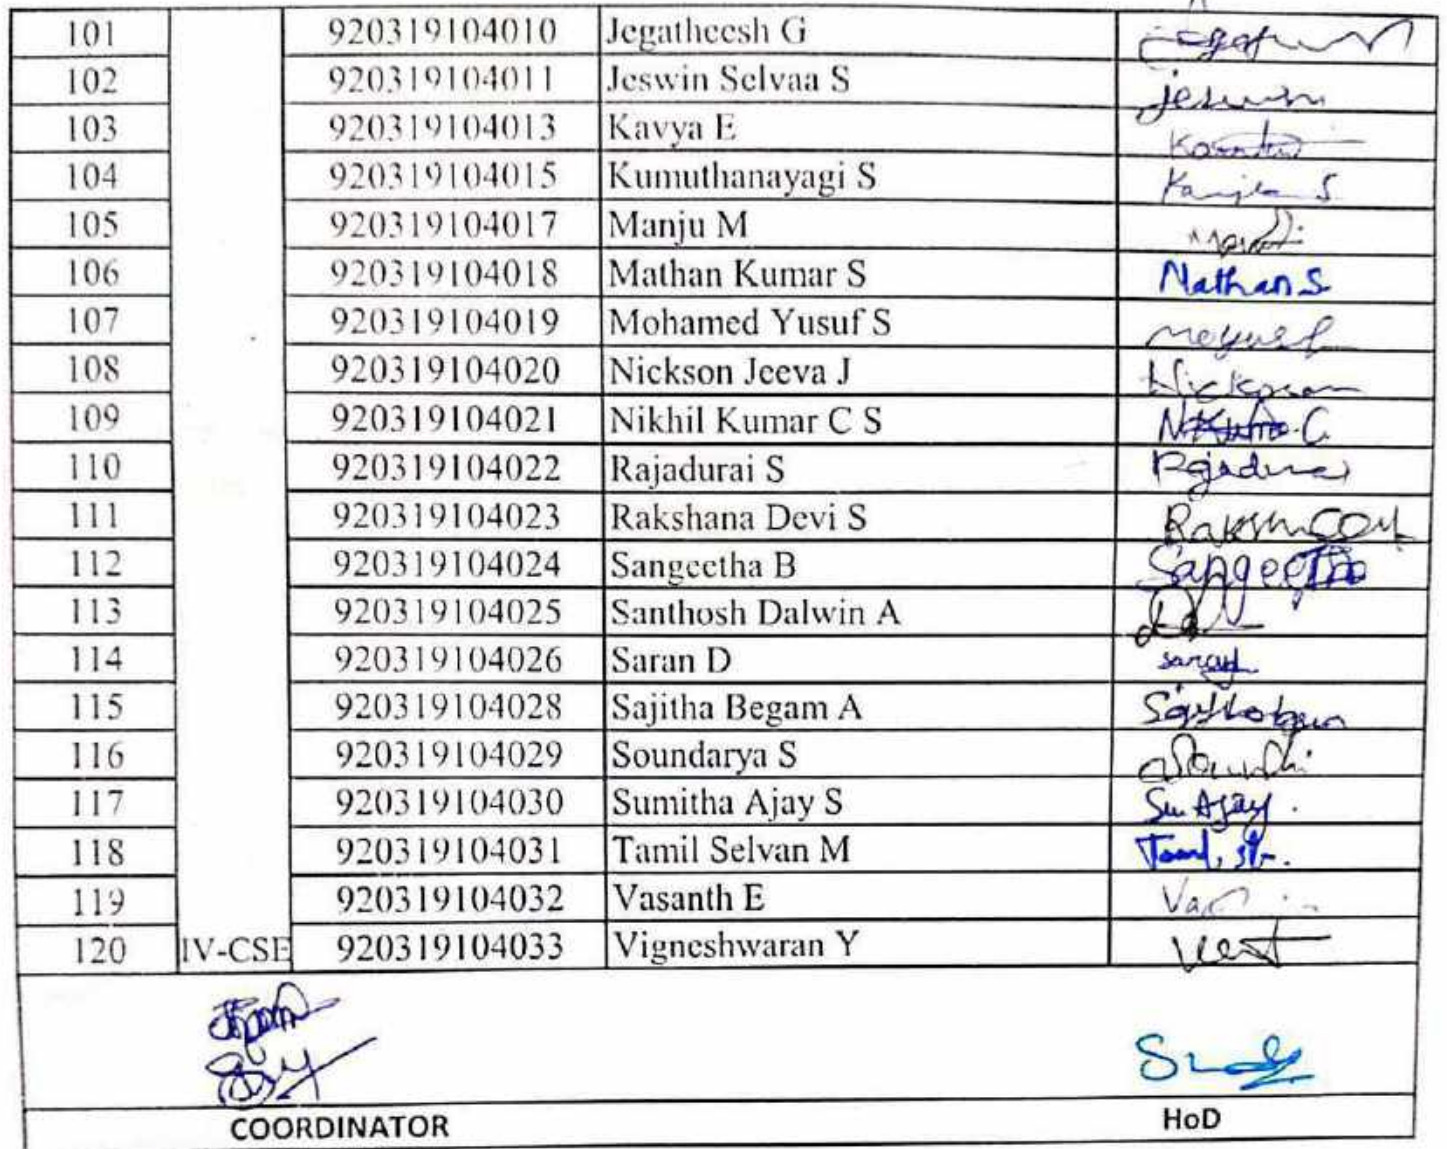 101 920319104010 Jegatheesh G
102 920319104011 Jeswin Selvaa S jeswin
103 920319104013 Kavya E
104 920319104015 Kumuthanayagi S
105 920319104017 Manju M
106 920319104018 Mathan Kumar S Mathan S
107 920319104019 Mohamed Yusuf S
108 920319104020 Nickson Jeeva J Nickson
109 920319104021 Nikhil Kumar C S
110 920319104022 Rajadurai S Rajadurai
111 920319104023 Rakshana Devi S
112 920319104024 Sangeetha B Sangeetha
113 920319104025 Santhosh Dalwin A
114 920319104026 Saran D saran
115 920319104028 Sajitha Begam A
116 920319104029 Soundarya S
117 920319104030 Sumitha Ajay S Su Ajay.
118 920319104031 Tamil Selvan M
119 920319104032 Vasanth E
120 IV-CSE 920319104033 Vigneshwaran Y
COORDINATOR HoD